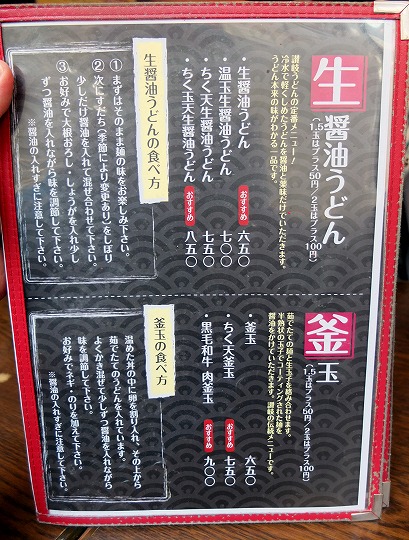 生醤油うどん
(1.5玉はプラス50円/2玉はプラス100円)
讃岐うどんの定番メニュー!
冷水で軽くしめたうどんを醤油と薬味だけでいただきます。
うどん本来の味がわかる一品です。
・生醤油うどん 六五〇
・温玉生醤油うどん 七〇〇
・ちく天生醤油うどん 七五〇
・ちく玉天生醤油うどん おすすめ 八五〇
生醤油うどんの食べ方
①まずはそのまま麺の味をお楽しみ下さい。
②次にすだち(季節により変更あり)をしぼり
少しだけ醤油を入れて混ぜ合わせて下さい。
③お好みで大根おろし・しょうがを入れ少し
ずつ醤油を入れながら味を調節して下さい。
※醤油の入れすぎに注意して下さい。
釜玉
(1.5玉はプラス50円/2玉はプラス100円)
茹でたての麺と生玉子を絡み合わせます。
半熟状の玉子でコーティングされた麺を
醤油をかけていただきます。讃岐の伝統メニューです。
・釜玉 六五〇
・ちく天釜玉 おすすめ 七五〇
・黒毛和牛 肉釜玉 おすすめ 九〇〇
釜玉の食べ方
温めた丼の中に卵を割り入れ、その上から
茹でたてのうどんを入れています。
よくかき混ぜて少しずつ醤油を入れながら
味を調節して下さい。
お好みでネギ・のりを加えて下さい。
※醤油の入れすぎに注意して下さい。